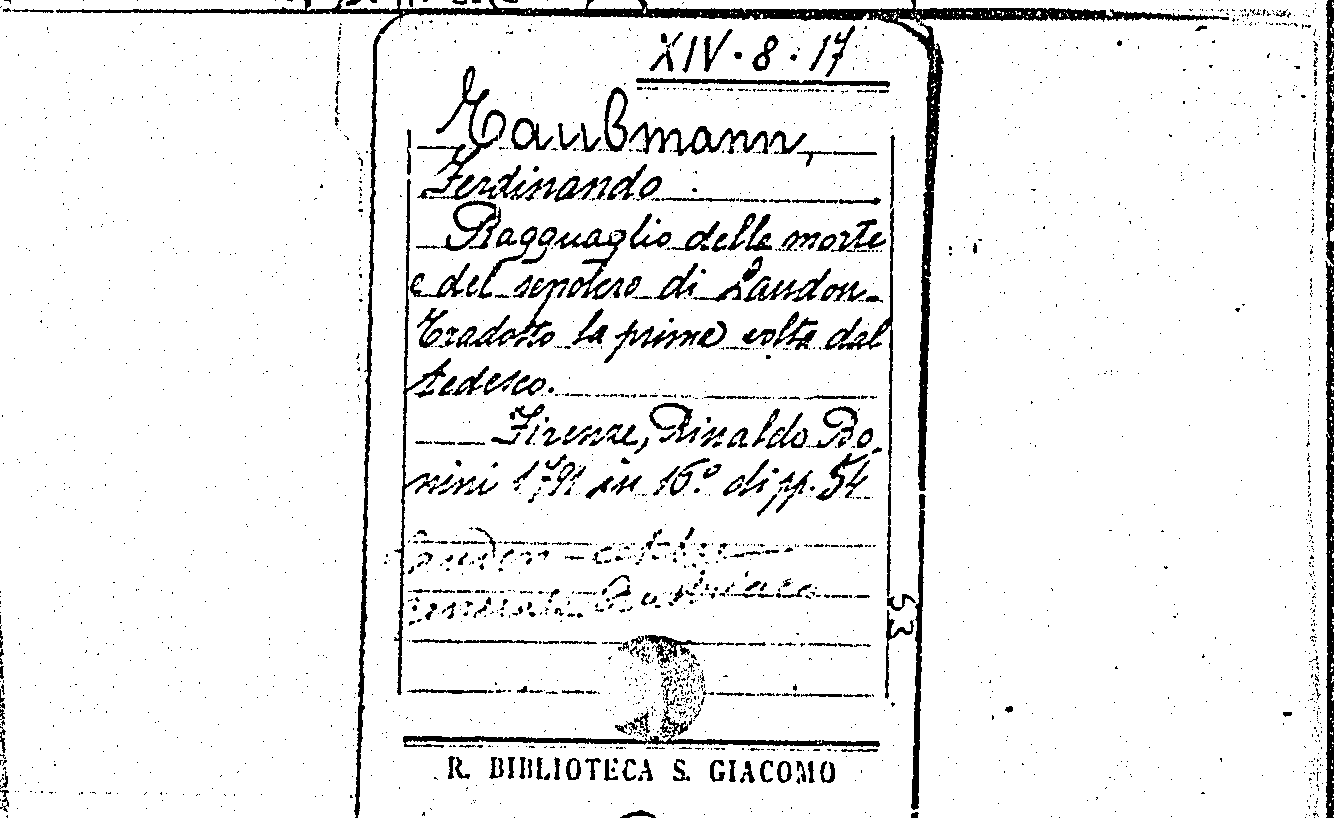 XIV. 8. 17
Taubmann,
Ferdinando.
Ragguaglio della morte
e del sepolcro di Laudon.
Tradotto la prima volta dal
tedesco.
Firenze, Rinaldo Bo-
nini 1791 in 16.° di pp. 54
Laudon - celebre
generale Austriaco
53
R. BIBLIOTECA S. GIACOMO